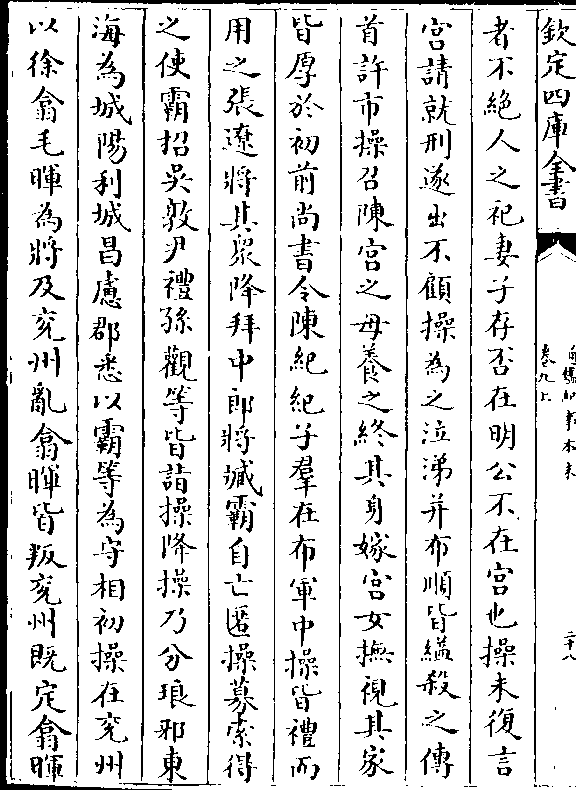 欽定四庫全書
通鑑紀事本末
卷九上
二十八
者不絶人之祀妻子存否在明公不在宫也操未復言
宫請就刑遂出不顧操為之泣涕并布順皆縊殺之傳
首許市操召陳宫之母養之終其身嫁宫女撫視其家
皆厚於初前尚書令陳紀紀子羣在布軍中操皆禮而
用之張遼將其衆降拜中郎將臧霸自亡匿操募索得
之使霸招吳敦尹禮孫觀等皆詣操降操乃分琅邪東
海為城陽利城昌慮郡悉以霸等為守相初操在兖州
以徐翕毛暉為將及兖州亂翕暉皆叛兖州既定翕暉